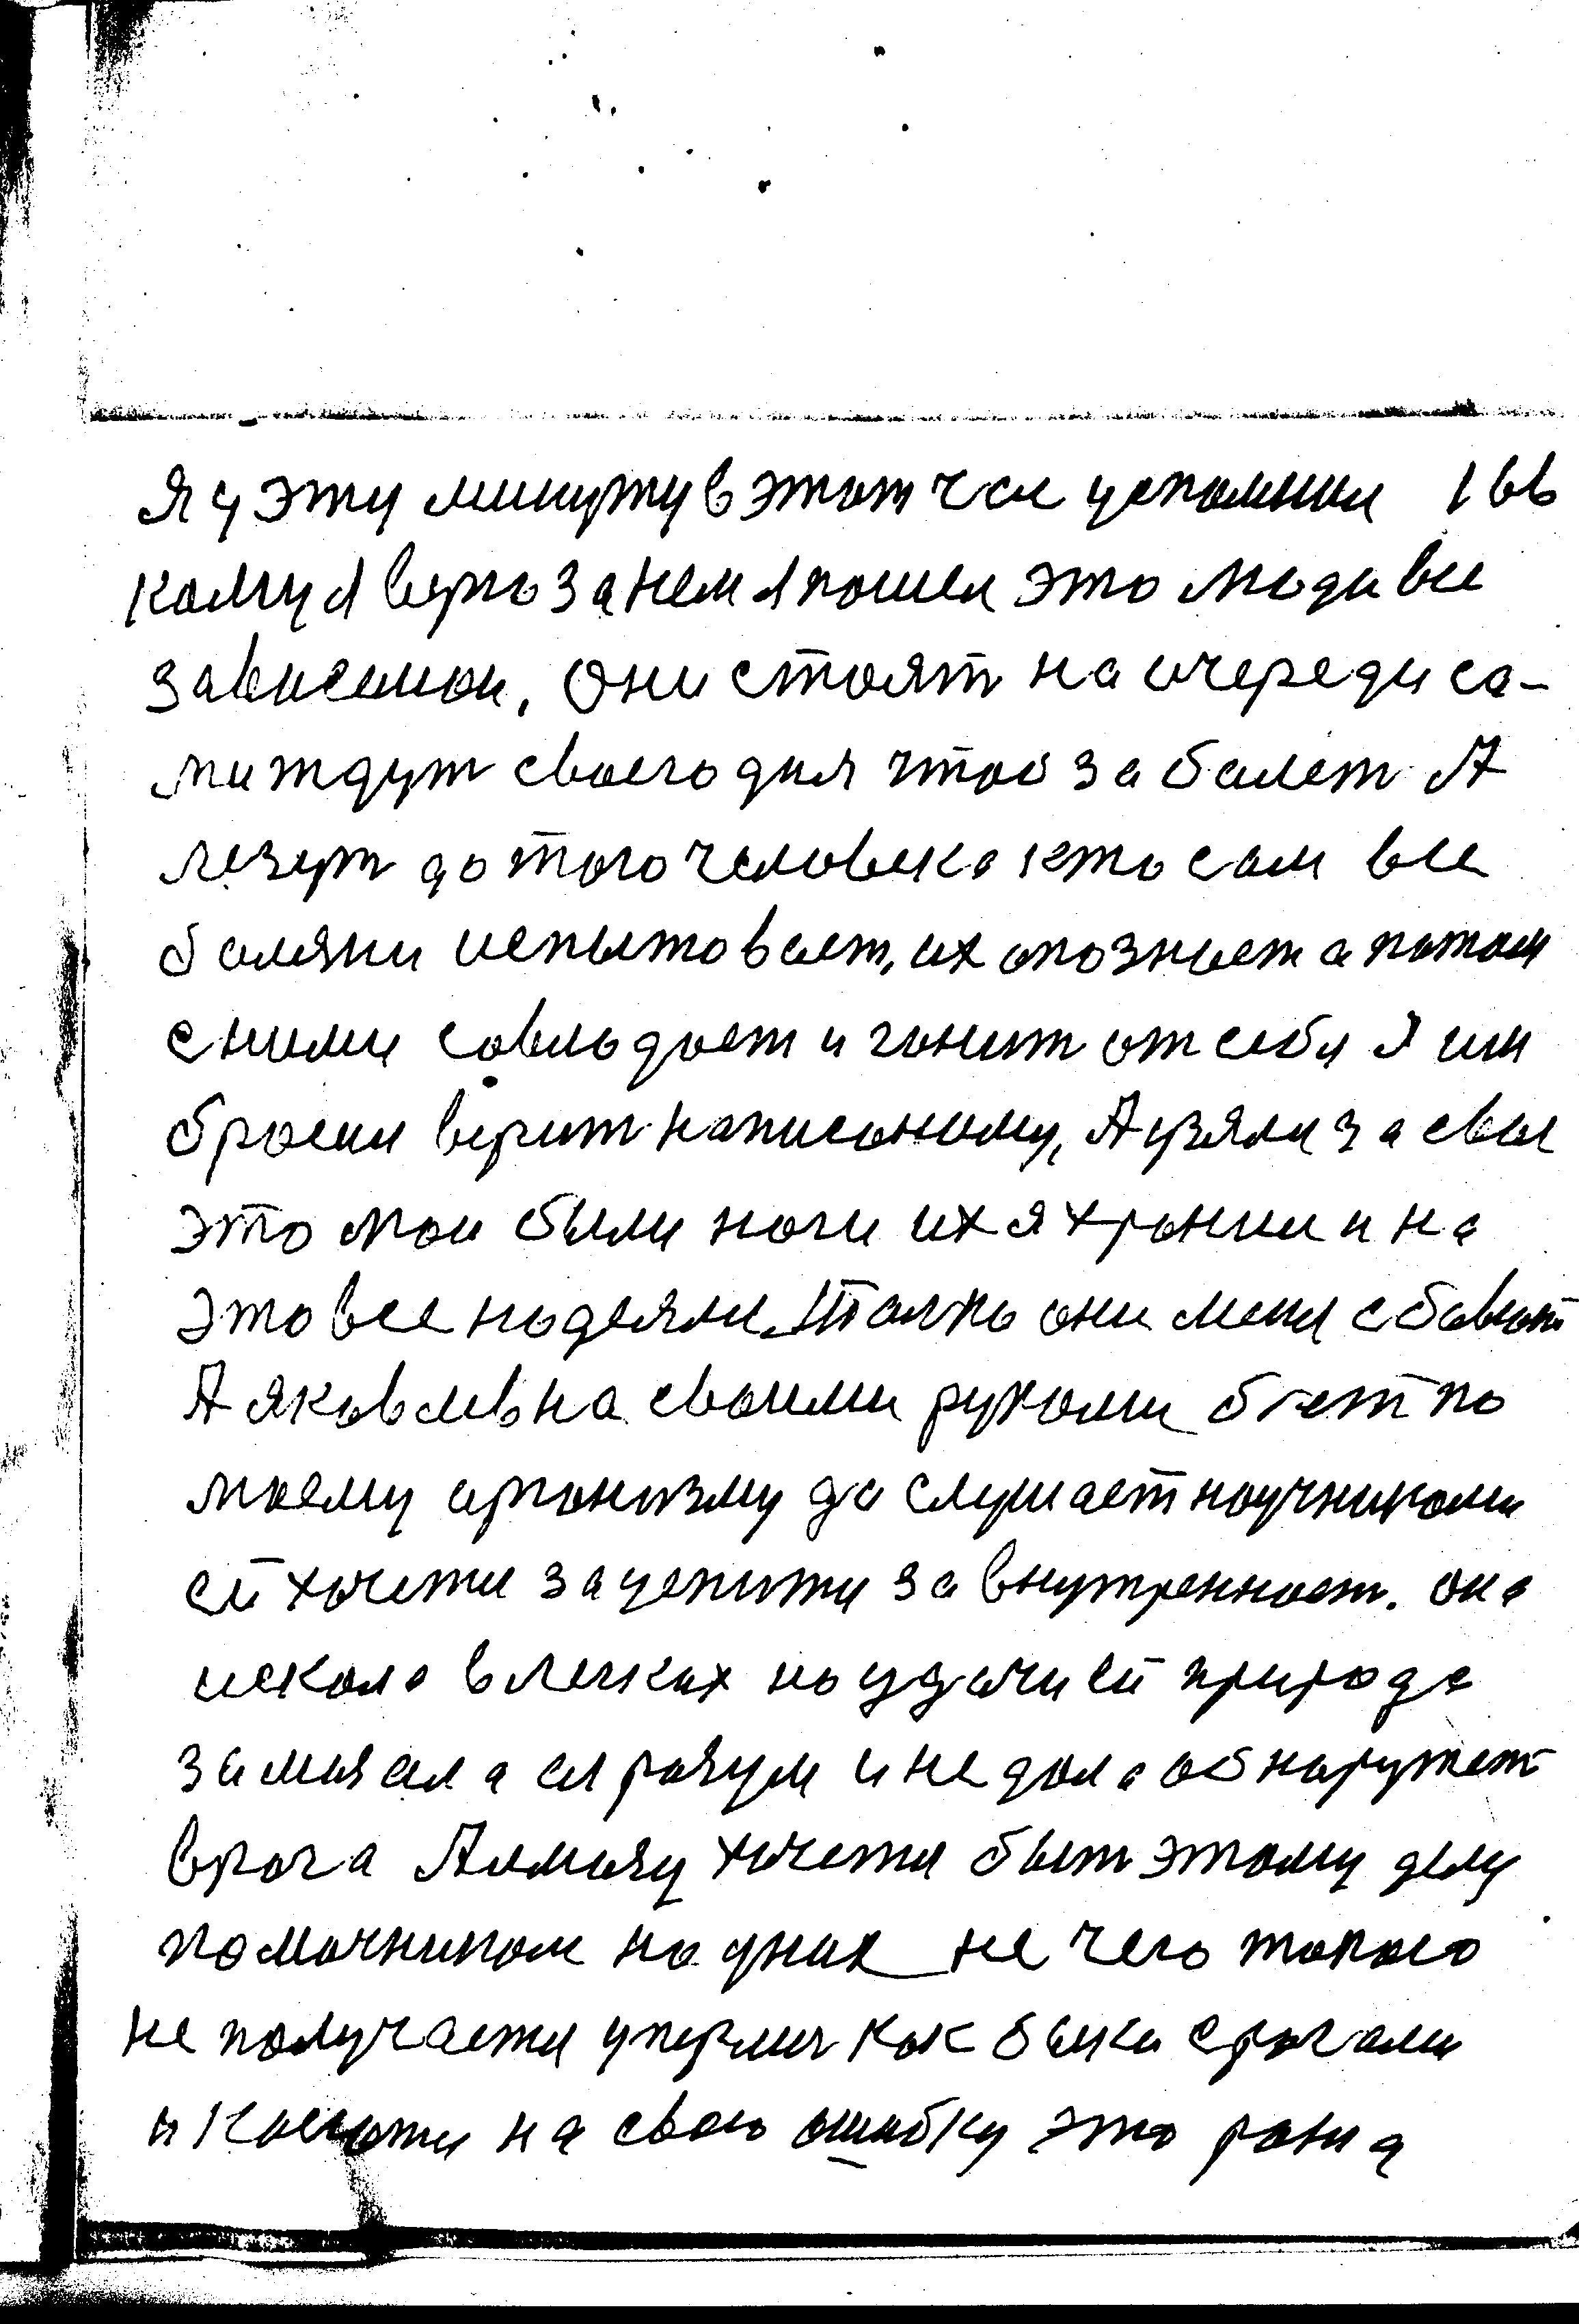 я у эту минуту в этот час успомнил 166
кому я верю за нем я пошел это люди все
зависемои, они стоят на очереди са-
ми ждут своего дня чтоб заболет А
лезут до того человека кто сам все
болязни испытовает, их опознает а потом
с ними совлюдает и гонит от себя Я им
бросил верит написоному, А узяли за свое
это мои были ноги их я хронил и на
это все надеяли. Только они меня
А яковлевна своими руками бегет по
моему арганизму да слушает научниками
ей хочется зацепится за внутренност. она
искала в легких но удачи ей природа
замоял а ея разум и не дала обнаружет
врача Алмазу хочется быт этому делу
помочником но однак не чего токого
не получается уперлис как быки с рогами
и на свою ошибку это рана